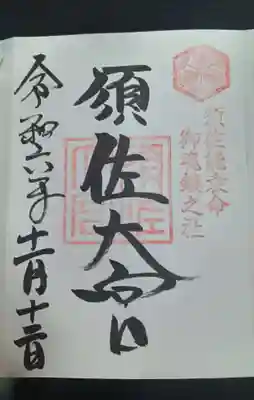 須佐能袁命
御魂鎮之社
須佐大宮
令和六年十一月十三日